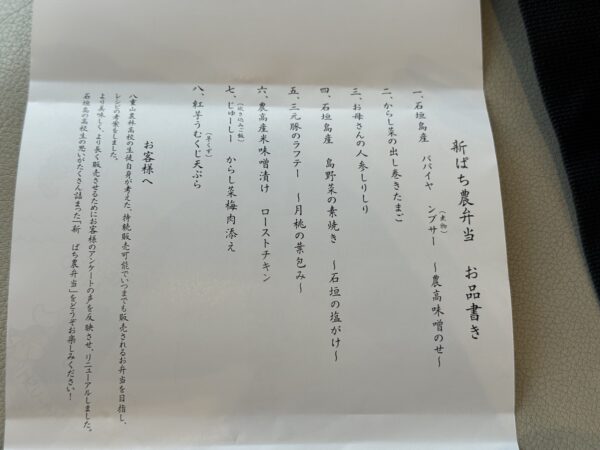 新ぱち農弁当　お品書き
一、石垣島産　パパイヤ　ンブサー(煮物)　～農高味噌のせ～
二、からし菜の出し巻きたまご
三、お母さんの人参しりしり
四、石垣島産　島野菜の素焼き　～石垣の塩がけ～
五、三元豚のラフテー　～月桃の葉包み～
六、農高産米味噌漬け　ローストチキン
七、じゅーしー(炊き込みご飯)　からし菜梅肉添え
八、紅芋うむくじ天ぷら(芋くず)
お客様へ
八重山農林高校の生徒自身が考えた、持続販売可能でいつまでも販売されるお弁当を目指し、
レシピの考案をしました。
より美味しく、より長く販売させるためにお客様のアンケートの声を反映させ、リニューアルしました。
石垣島の高校生の思いがたくさん詰まった「新　ぱち農弁当」をどうぞお楽しみください！